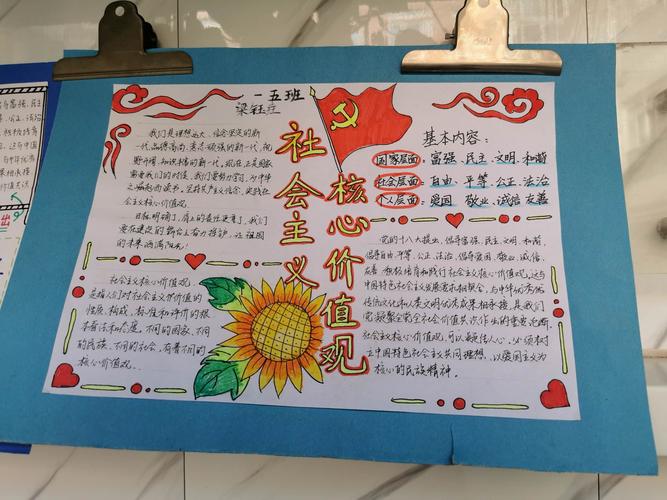 一五班
社会主义
核心价值观
基本内容：
国家层面：富强 民主 文明 和谐
社会层面：自由 平等 公正 法治
个人层面：爱国 敬业 诚信 友善
我们是理想远大、信念坚定的新
一代，品德高尚、意志顽强的新一代，视
野开阔、知识丰富的新一代，现在，正是国家
需要我们的时候，我们要努力学习，为中华
之崛起而读书，坚持共产主义信念，实践社
会主义核心价值观。
目标明确了，肩上的责任更重了，我们
要在建设的舞台上奋力拼搏，让祖国
的未来洒满阳光！
社会主义核心价值观，
是指人们对社会主义价值的
性质、构成、标准和评价的根
本看法和态度，不同的国家、不同
的民族、不同的社会，有着不同的
核心价值观。
党的十八大提出，倡导富强、民主、文明、和谐，
倡导自由、平等、公正、法治，倡导爱国、敬业、诚信、
友善，积极培育和践行社会主义核心价值观，这与
中国特色社会主义发展要求相契合，与中华优秀传
统文化和人类文明优秀成果相承接，是我们
党凝聚全党全社会价值共识作出的重要论断，
社会主义核心价值观，可以凝结人心，必须树
立中国特色社会主义共同理想，以爱国主义为
核心的民族精神。